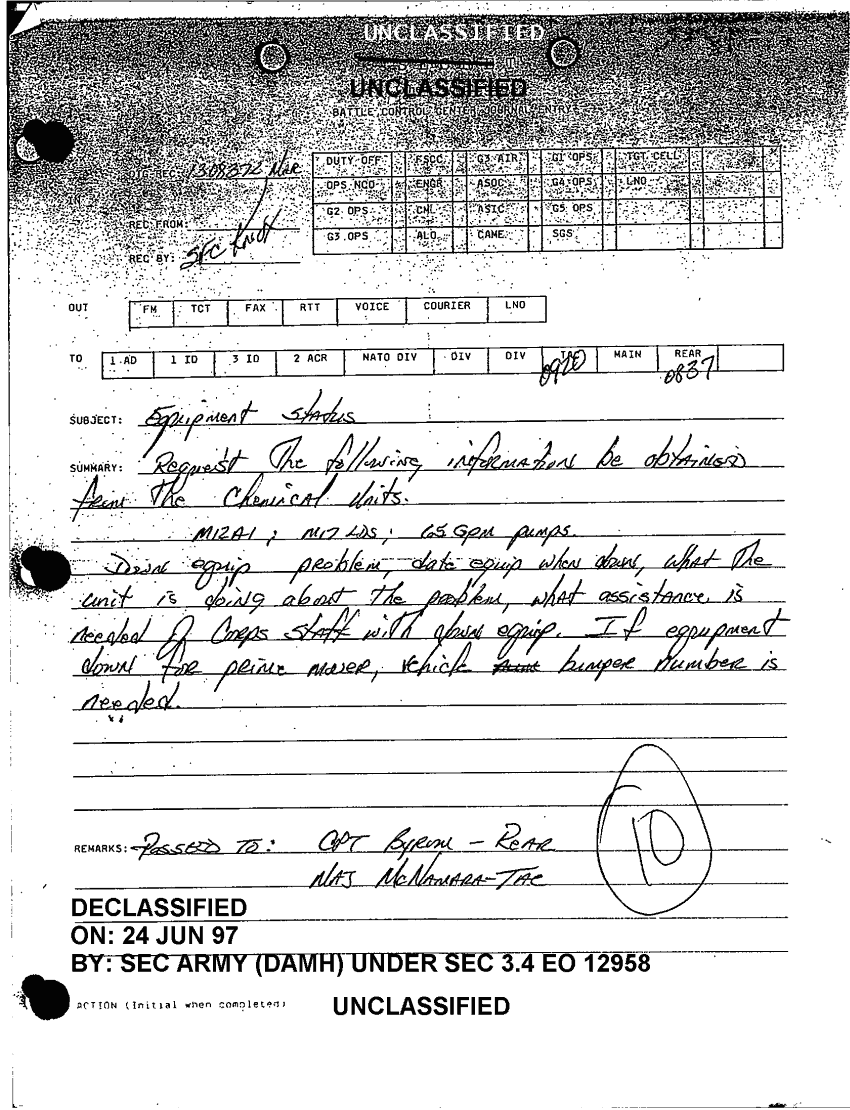 UNCLASSIFIED
UNCLASSIFIED
BATTLE CONTROL CENTER JOURNAL ENTRY
DTG REC: 130837Z Mar
DUTY OFF FSCC G3 AIR G1 OPS TGT CELL
IN OPS NCO ENGR ASOC G4 OPS LNO
REC FROM: G2 OPS CML ASIC G5 OPS
REC BY: SFC Knox G3 OPS ALO CAME SGS
OUT FM TCT FAX RTT VOICE COURIER LNO
TO 1 AD 1 ID 3 ID 2 ACR NATO DIV DIV DIV TAC MAIN REAR
0920 0837
SUBJECT: Equipment Status
SUMMARY: Request The following information be obtained
from The Chemical Units.
M12A1; M17 LDS; 65 GPM pumps.
Down equip problem, date equip when down, what The
unit is doing about The problem, what assistance is
needed of Corps Staff with down equip. If equipment
down for prime mover, vehicle bumper number is
needed.
10
REMARKS: Passed To: CPT Byrom - Rear
MAJ McNamara-Tac
DECLASSIFIED
ON: 24 JUN 97
BY: SEC ARMY (DAMH) UNDER SEC 3.4 EO 12958
ACTION (Initial when completed)
UNCLASSIFIED